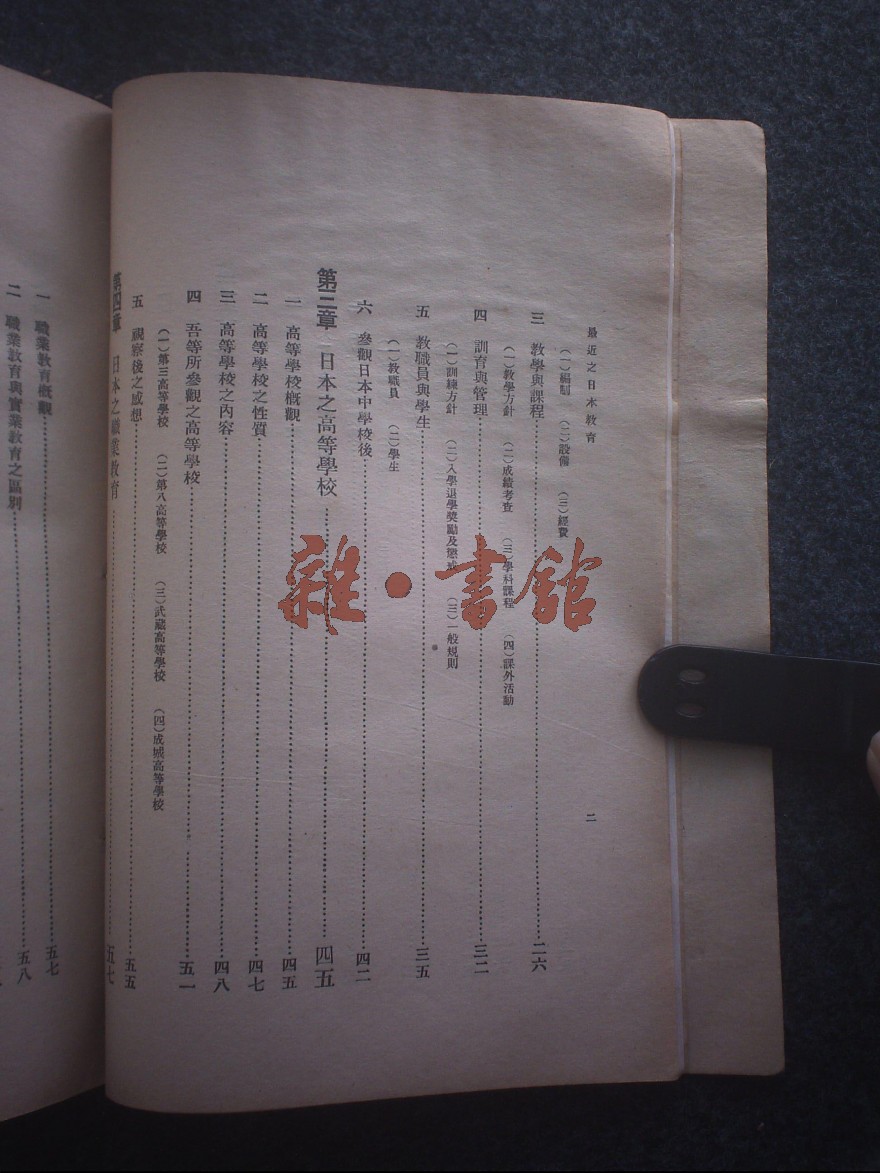 最近之日本教育
二
(一)編制 (二)設備 (三)經費
三 教學與課程……二六
(一)教學方針 (二)成績考查 (三)學科課程 (四)課外活動
四 訓育與管理……三二
(一)訓練方針 (二)入學退學獎勵及懲戒 (三)一般規則
五 教職員與學生……三五
(一)教職員 (二)學生
六 參觀日本中學校後……四二
第三章 日本之高等學校……四五
一 高等學校概觀……四五
二 高等學校之性質……四七
三 高等學校之內容……四八
四 吾等所參觀之高等學校……五一
(一)第三高等學校 (二)第八高等學校 (三)武藏高等學校 (四)成城高等學校
五 視察後之感想……五五
第四章 日本之職業教育……五七
一 職業教育概觀……五七
二 職業教育與實業教育之區別……五八
雜·書館